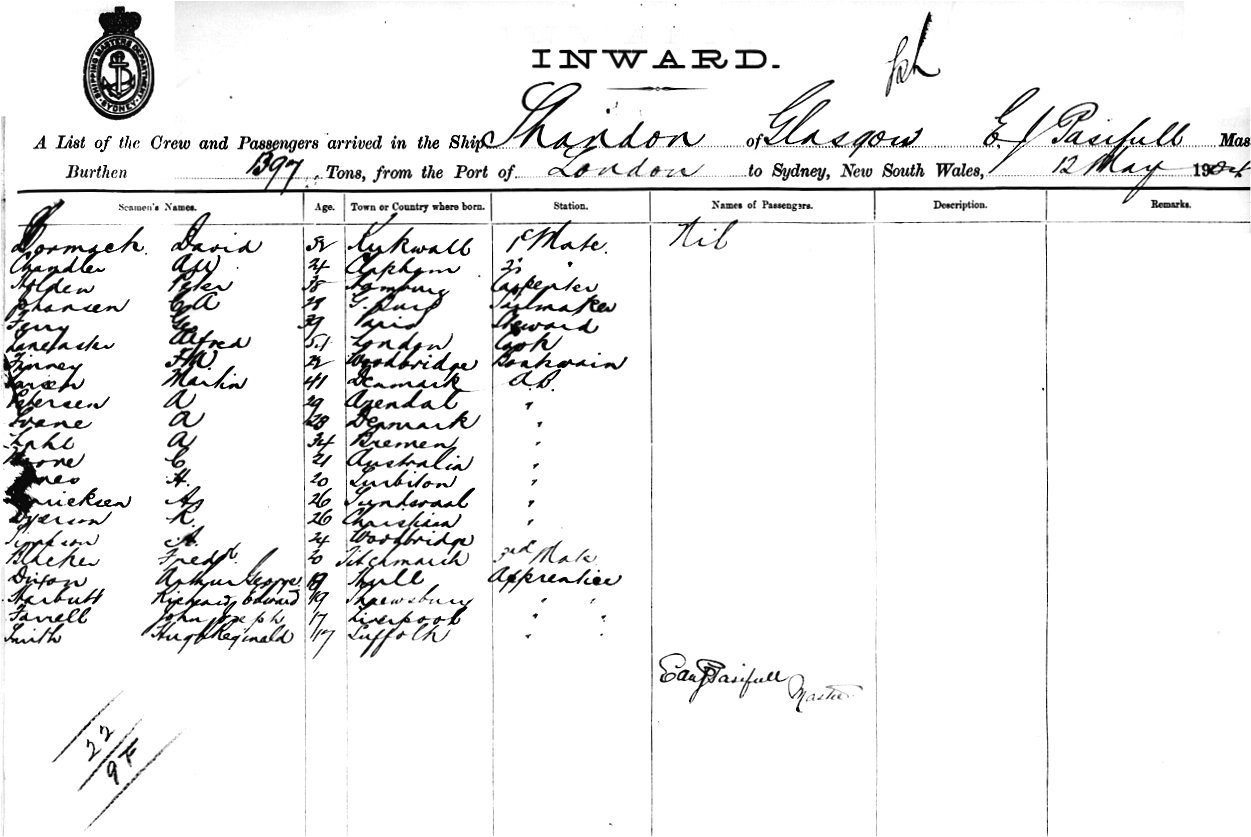 SHIPPING MASTERS DEPARTMENT SYDNEY
INWARD.
A List of the Crew and Passengers arrived in the Ship Shandon of Glasgow E. J Pasifull Mas
Burthen 1397 Tons, from the Port of London to Sydney, New South Wales, 12 May 19
Seamen's Names. Age. Town or Country where born. Station. Names of Passengers. Description. Remarks.
Cormack David Kirkwall 1st Mate. Nil
Chandler 24 Clapham 2 "
Holden Peter 38 Hamburg Carpenter
Johansen C A 29 G. burg Sailmaker
Ferry Geo 39 Paris Steward
Lancaster Alfred 51 London Cook
Finney F.W. Woodbridge Boatswain
Larsen Martin 41 Denmark A.B.
Petersen A 29 Arendal "
Svane A 28 Denmark "
A 34 Bremen "
Moore C 21 Australia "
H. 20 Surbiton "
26 Sundsvaal "
K. 26 Christiana "
Simpson A. 24 Woodbridge
Blacker Fredk 20 Titchmarsh 3rd Mate
Dixon Arthur George 19 Hull Apprentice
Harbutt Richard Edward 19 Shrewsbury " "
Farrell John Joseph 17 Liverpool " "
Smith Hugh Reginald 17 Suffolk " "
Pasifull
Master
22